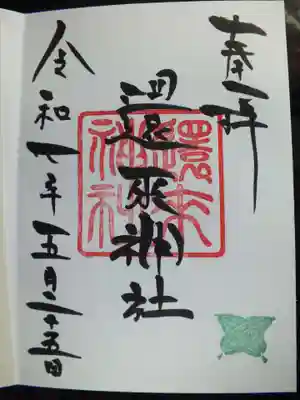 奉拝
還來神社
還來
神社
令和七年五月二十五日